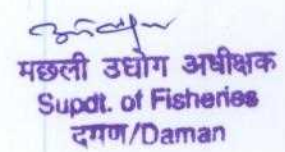 मछली उधोग अधीक्षक
Supdt. of Fisheries
दमण/Daman